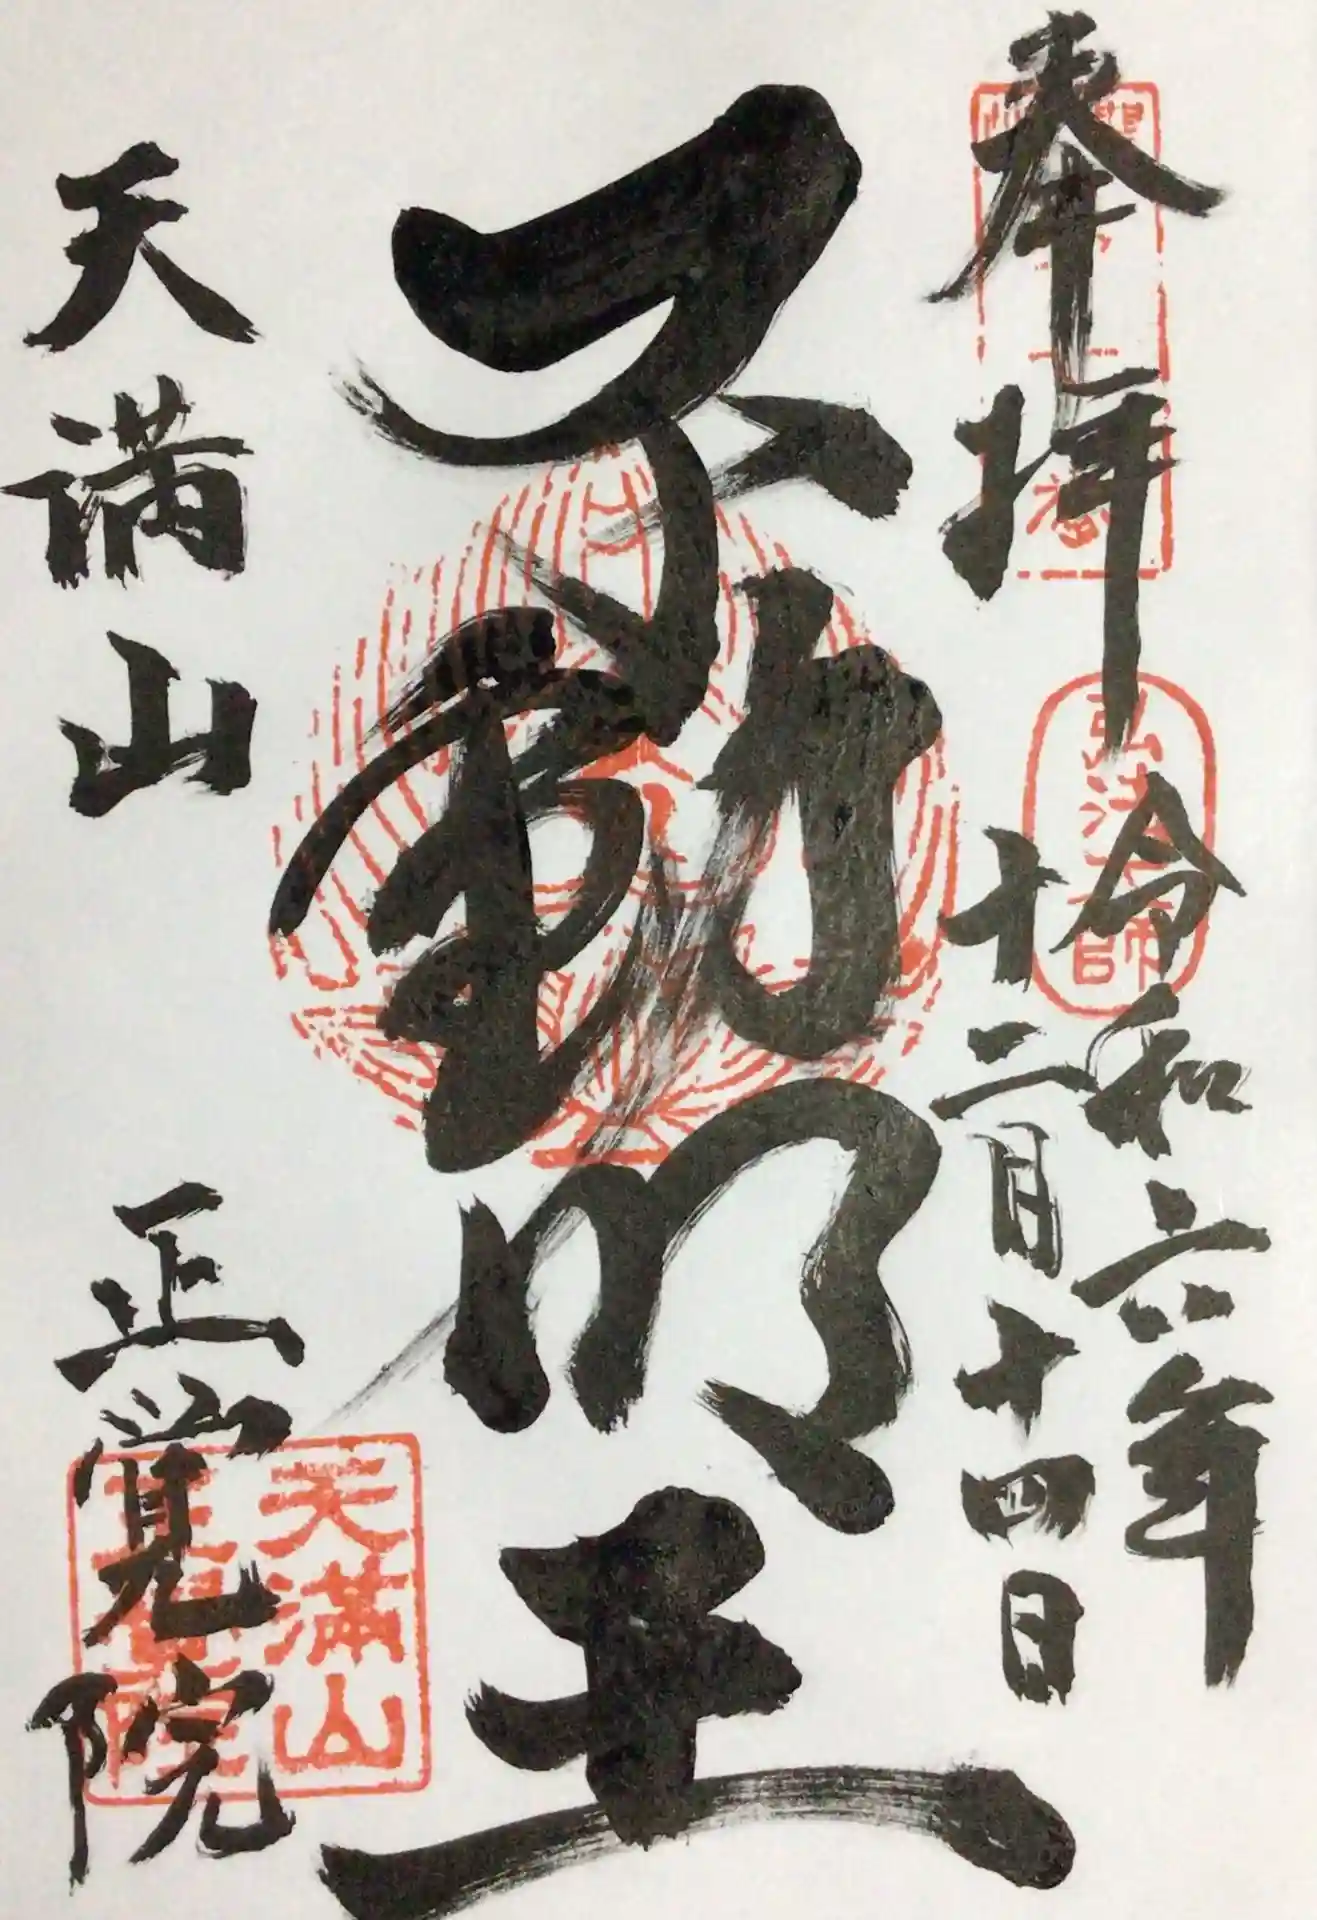 奉拝
令和六年
十二月十四日
弘法大師
不動明王
天満山
正覚院
天満山
正覚院